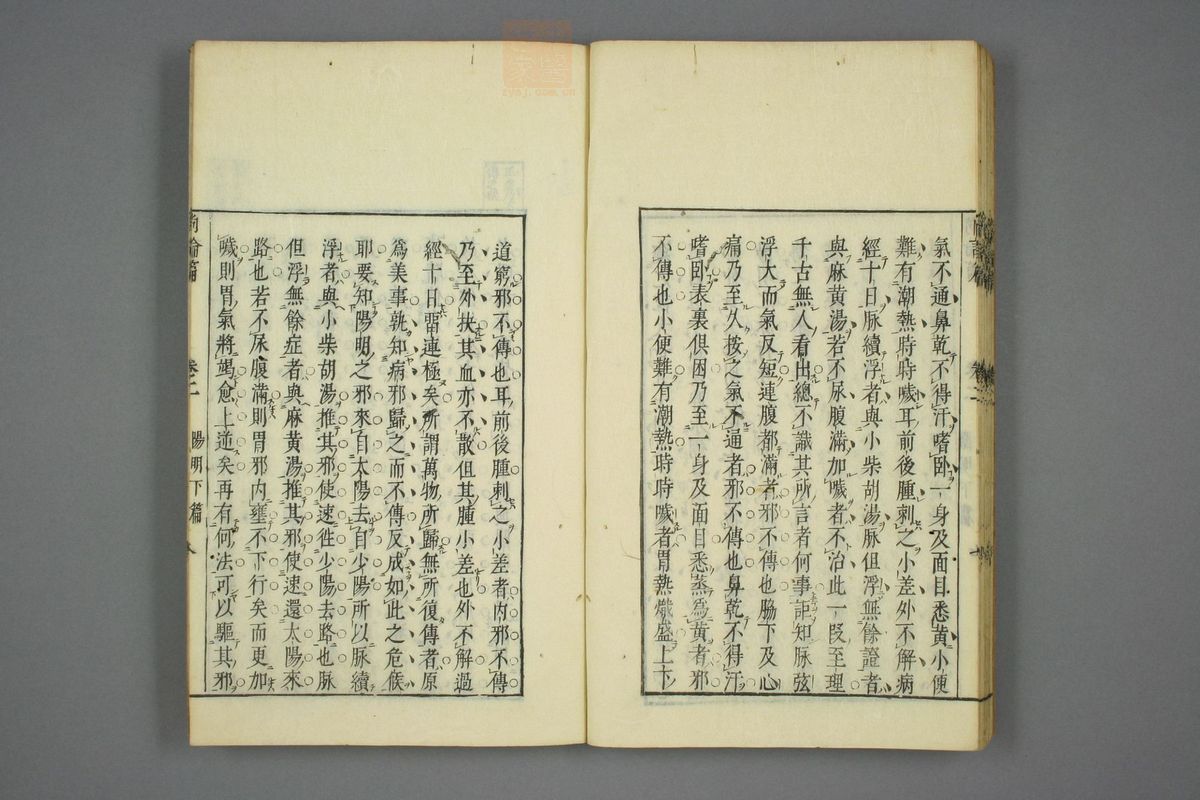 氣不通鼻乾不得汗嗜卧一身及面目悉黃小便
難有潮熱時時噦耳前後腫刺之小差外不解病
經十日脉續浮者與小柴胡湯脉但浮無餘證者
與麻黃湯若不尿腹滿加噦者不治此一段至理
千古無人看出總不識其所言者何事詎知脉弦
浮大而氣反短連腹都滿者邪不傳也脇下及心
痛乃至久按之氣不通者邪不傳也鼻乾不得汗
嗜卧表裏俱困乃至一身及面目悉蒸爲黃者邪
不傳也小便難有潮熱時時噦者胃熱熾盛上下
道窮邪不傳也耳前後腫刺之小差者內邪不傳
乃至外挾其血亦不散但其腫小差也外不解過
經十日留連極矣所謂萬物所歸無所復傳者原
爲美事孰知病邪歸之而不傳反成如此之危候
耶要知陽明之邪來自太陽去自少陽所以脉續
浮者與小柴胡湯推其邪使速徃少陽去路也脉
但浮無餘症者與麻黃湯推其邪使速還太陽來
路也若不尿腹滿則胃邪內壅不下行矣而更加
噦則胃氣將竭愈上逆矣再有何法可以驅其邪
尚論篇 卷二 陽明下篇